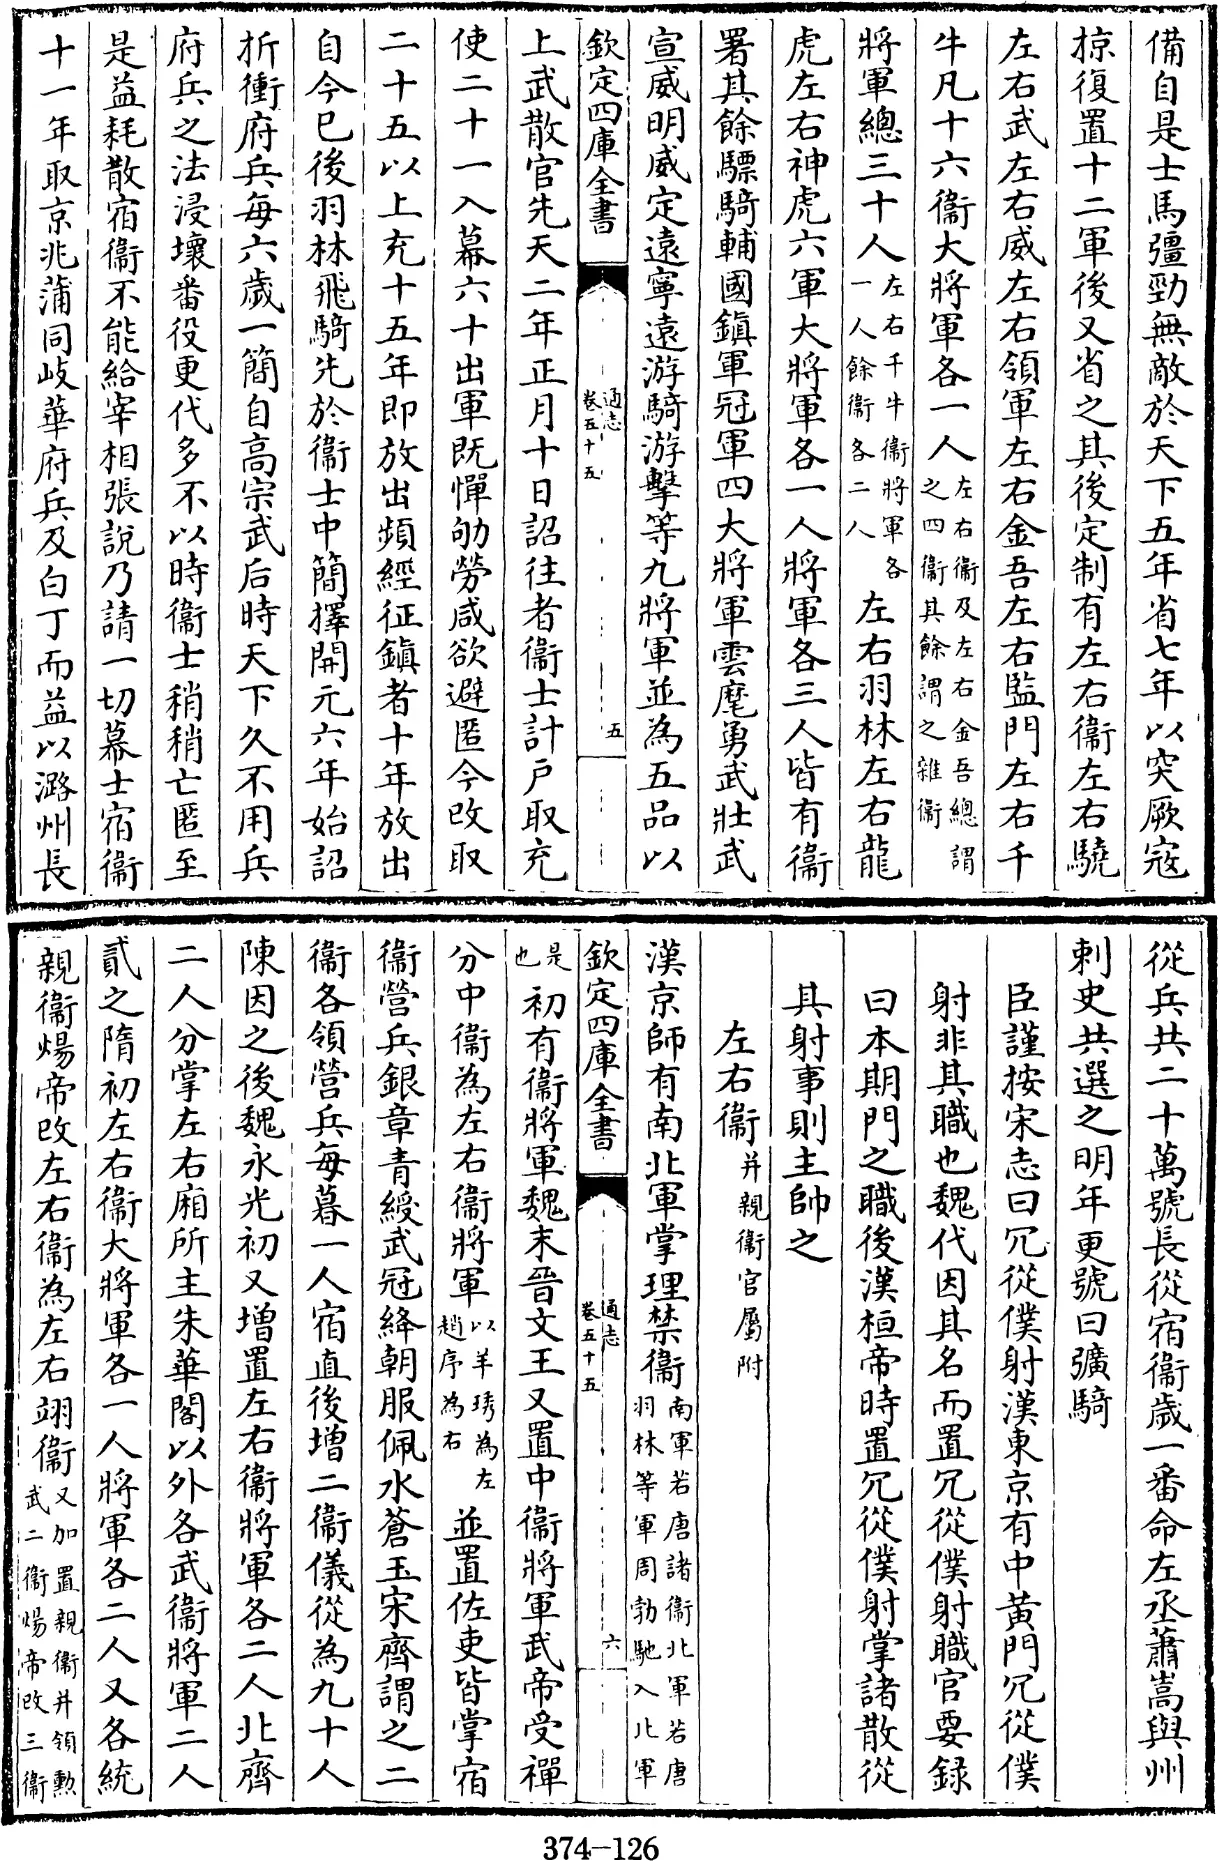 備自是士馬彊勁無敵於天下五年省七年以突厥寇
掠復置十二軍後又省之其後定制有左右衞左右驍
左右武左右威左右領軍左右金吾左右監門左右千
牛凡十六衞大將軍各一人左右衞及左右金吾總謂之四衞其餘謂之雜衞
將軍總三十人左右千牛衞將軍各一人餘衞各二人左右羽林左右龍
虎左右神虎六軍大將軍各一人將軍各三人皆有衞
署其餘驃騎輔國鎮軍冠軍四大將軍雲麾勇武壯武
宣威明威定遠寧遠游騎游擊等九將軍並為五品以
欽定四庫全書
通志
卷五十五
五
上武散官先天二年正月十日詔往者衞士計戶取充
使二十一入幕六十出軍既憚劬勞咸欲避匿今改取
二十五以上充十五年即放出頻經征鎮者十年放出
自今已後羽林飛騎先於衞士中簡擇開元六年始詔
折衝府兵每六歲一簡自高宗武后時天下久不用兵
府兵之法浸壞番役更代多不以時衞士稍稍亡匿至
是益耗散宿衞不能給宰相張說乃請一切募士宿衞
十一年取京兆蒲同岐華府兵及白丁而益以潞州長
從兵共二十萬號長從宿衞歲一番命左丞蕭嵩與州
刺史共選之明年更號曰彍騎
臣謹按宋志曰冗從僕射漢東京有中黃門冗從僕
射非其職也魏代因其名而置冗從僕射職官要録
曰本期門之職後漢桓帝時置冗從僕射掌諸散從
其射事則主帥之
左右衞并親衞官屬附
漢京師有南北軍掌理禁衞南軍若唐諸衞北軍若唐羽林等軍周勃馳入北軍
欽定四庫全書
通志
卷五十五
六
是也初有衞將軍魏末晉文王又置中衞將軍武帝受禪
分中衞為左右衞將軍以羊琇為左趙序為右並置佐吏皆掌宿
衞營兵銀章青綬武冠絳朝服佩水蒼玉宋齊謂之二
衞各領營兵每暮一人宿直後增二衞儀從為九十人
陳因之後魏永光初又增置左右衞將軍各二人北齊
二人分掌左右廂所主朱華閣以外各武衞將軍二人
貳之隋初左右衞大將軍各一人將軍各二人又各統
親衞煬帝改左右衞為左右翊衞又加置親衞并領勳武二衞煬帝改三衞
374-126